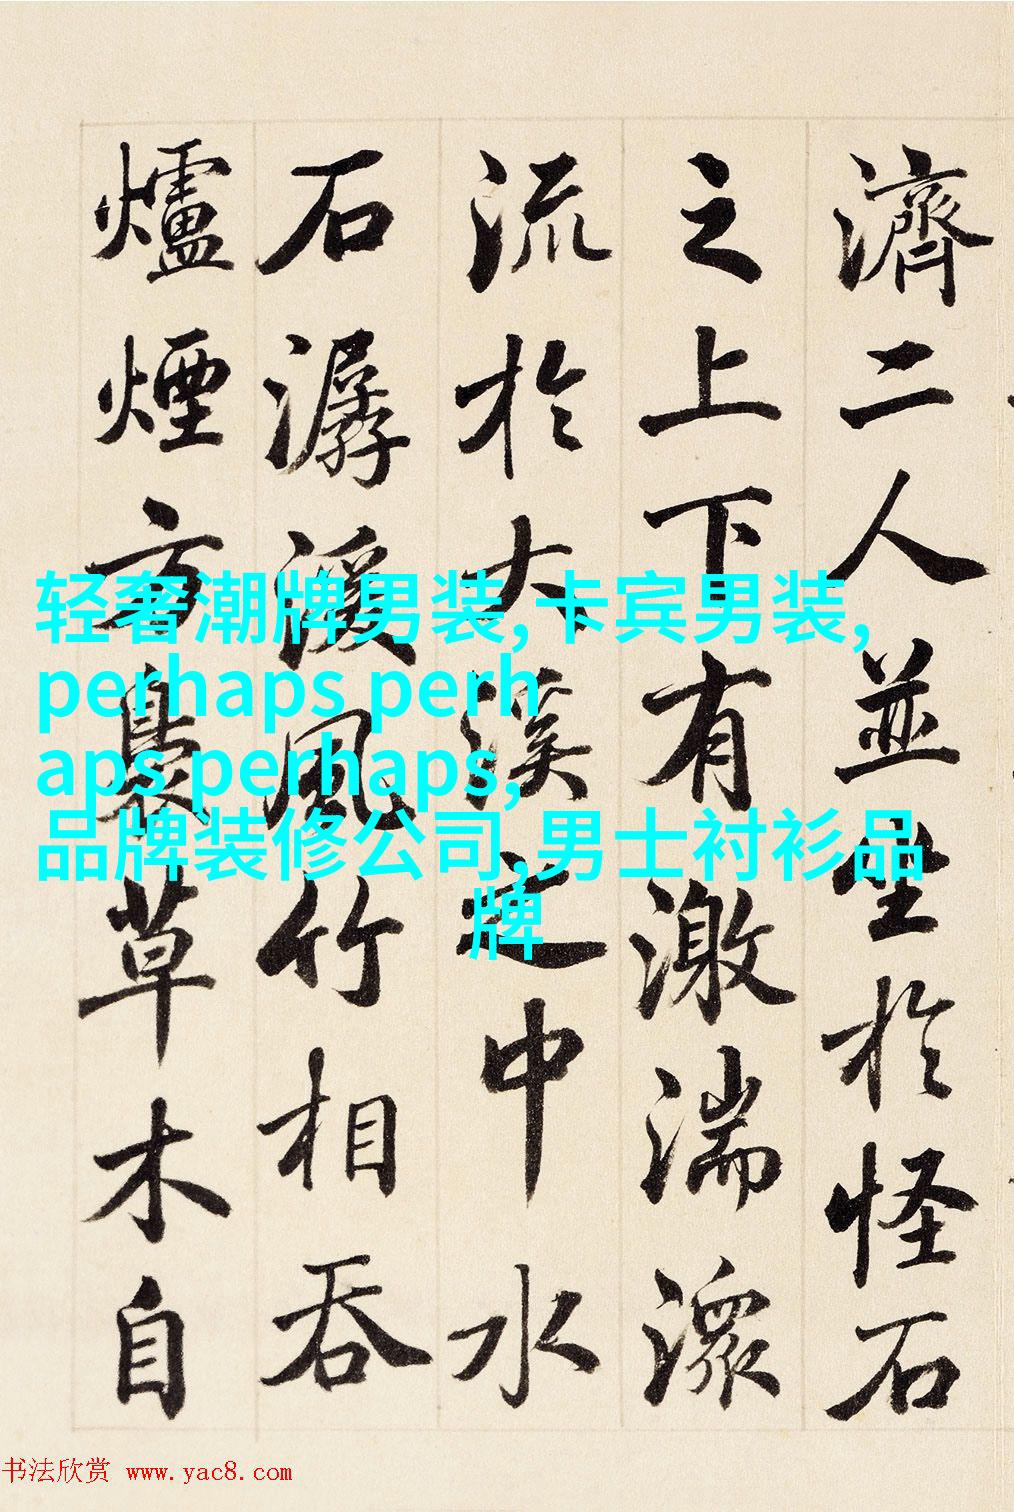 濟二人並坐於怪石
之上下有激湍潀
流於大溪之中水
石潺湲風竹相吞
爐煙方裊草木自
轻奢潮牌男装,卡宾男装,
perhaps perh
aps perhaps,
品牌装修公司,男士衬衫品
牌
书法欣赏 www.yac8.com